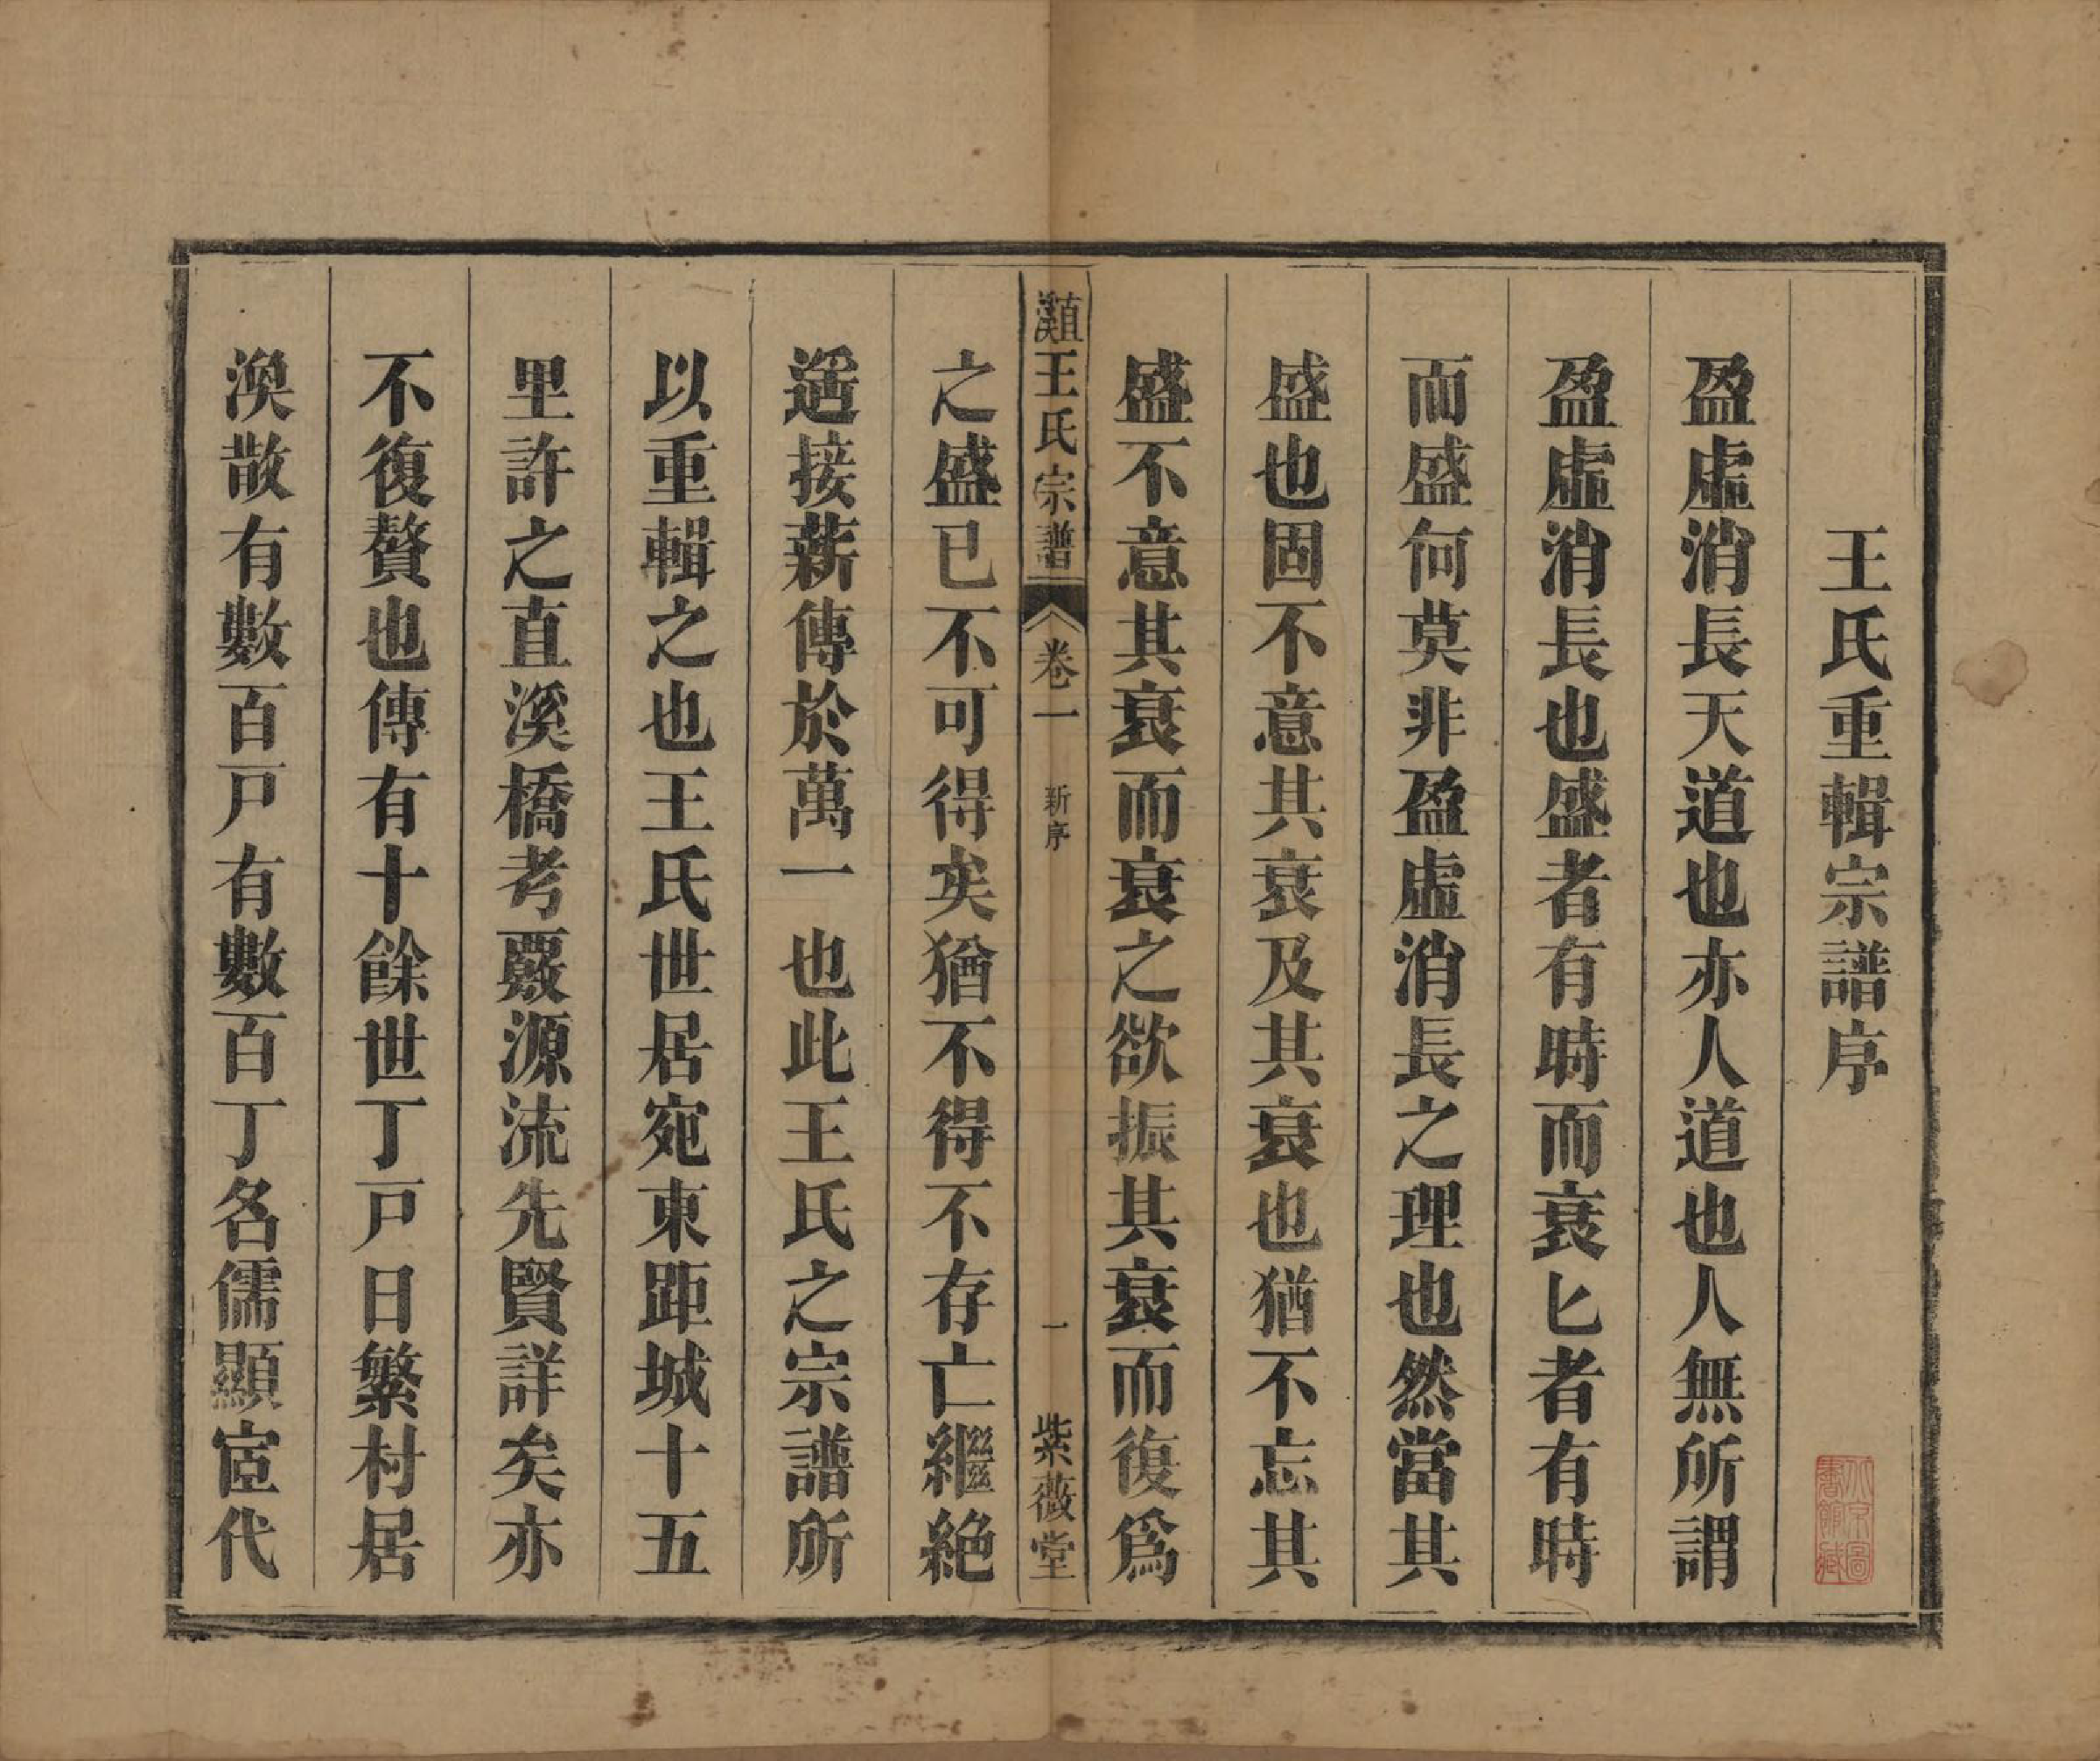 王氏重輯宗譜序
盈虛消長天道也亦人道也人無所謂
盈虛消長也盛者有時而衰匕者有時
而盛何莫非盈虛消長之理也然當其
盛也固不意其衰及其衰也猶不忘其
盛不意其衰而衰之欲振其衰而復爲
直溪王氏宗譜 卷一 新序 一 紫薇堂
之盛已不可得矣猶不得不存亡繼絶
遥接薪傳於萬一也此王氏之宗譜所
以重輯之也王氏世居宛東距城十五
里許之直溪橋考覈源流先賢詳矣亦
不復贅也傳有十餘世丁戸日繁村居
渙散有數百戸有數百丁名儒顯宦代
北京圖書館藏